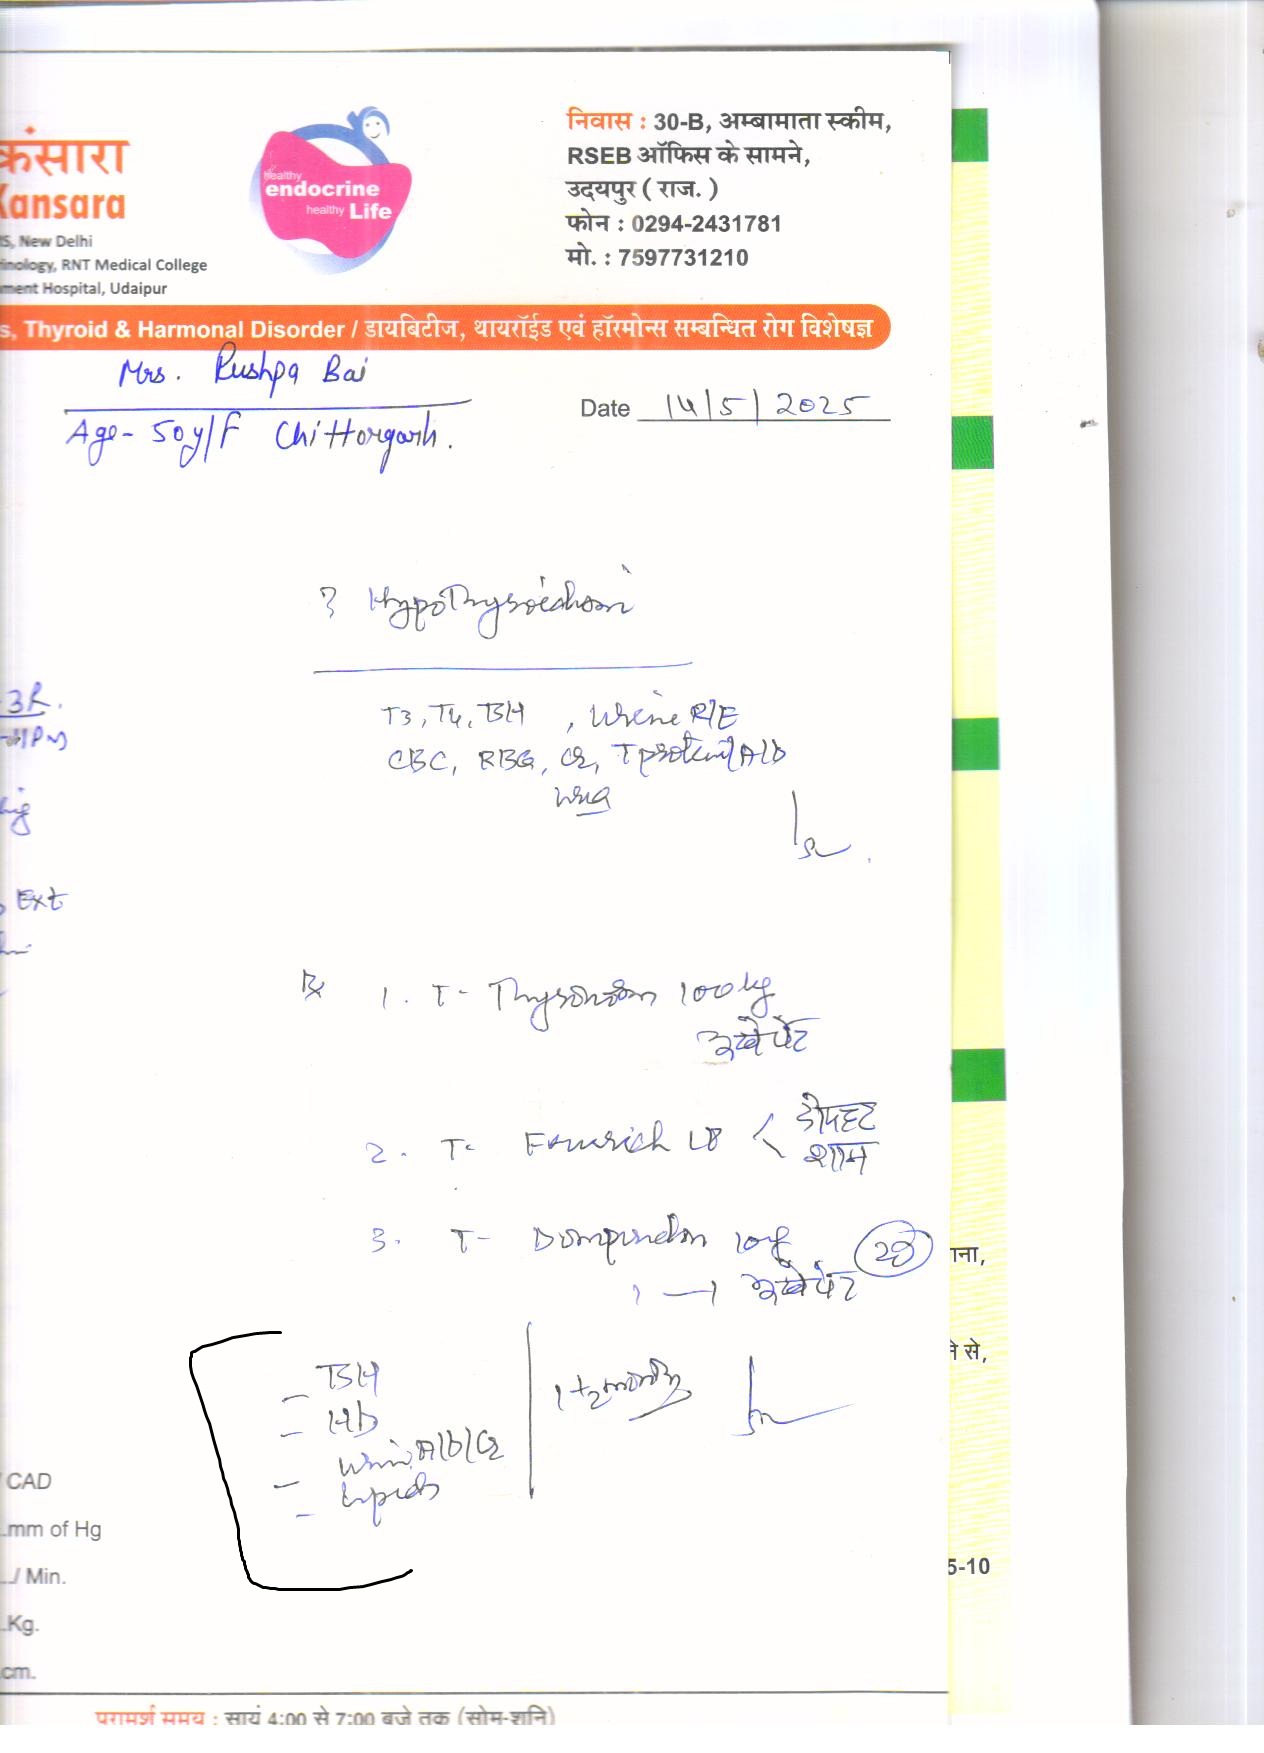 कंसारा
Kansara
S, New Delhi
inology, RNT Medical College
ment Hospital, Udaipur
healthy
endocrine
healthy Life
निवास : 30-B, अम्बामाता स्कीम,
RSEB ऑफिस के सामने,
उदयपुर ( राज. )
फोन : 0294-2431781
मो. : 7597731210
s, Thyroid & Harmonal Disorder / डायबिटीज, थायरॉईड एवं हॉरमोन्स सम्बन्धित रोग विशेषज्ञ
Mrs. Pushpa Bai
Date 14/5/2025
Age- 50y/F Chittorgarh.
? Hypothyroidism
3R.
T3, T4, TSH , Urine R/E
CBC, RBG, Cr, T protein/Alb
Ext
Rx 1. T- Thyronorm 100
2. T- LB < दोपहर
शाम
3. T- 10mg
TSH
Hb
Urine Alb/Cr
Lipids
गाना,
ने से,
/ CAD
..mm of Hg
../ Min.
.Kg.
cm.
5-10
परामर्श समय : सायं 4:00 से 7:00 बजे तक (सोम-शनि)